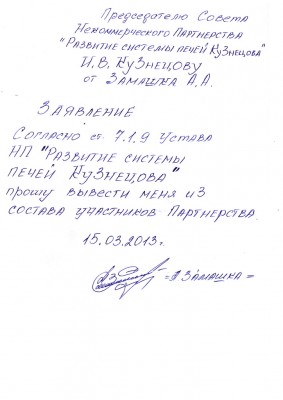 Председателю Совета
Некоммерческого Партнерства
"Развитие системы печей Кузнецова"
И.В. Кузнецову
от Замашка А.А.
Заявление
Согласно ст. 7.1.9 Устава
НП "Развитие системы
печей Кузнецова"
прошу вывести меня из
состава участников Партнерства.
15.03.2013г.
=АЗамашка=